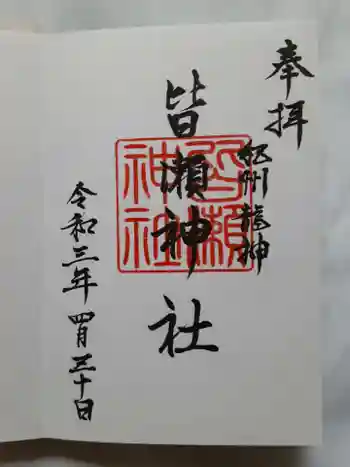 奉拝
紀州龍神
皆瀬神社
皆瀬神社
令和三年 四月三十日